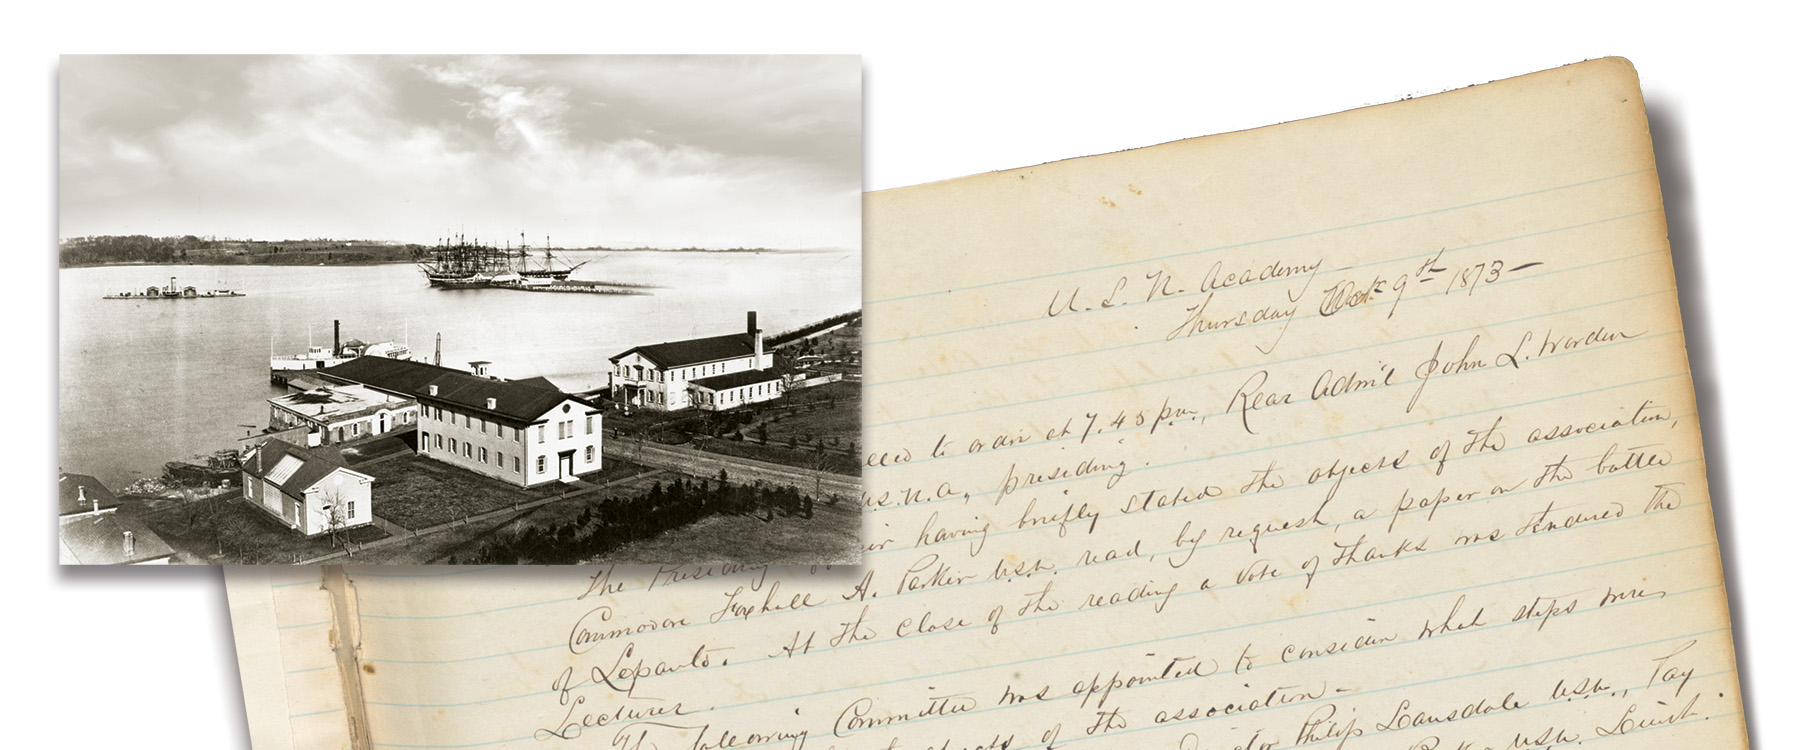 U. S. N. Academy
Thursday Oct. 9th 1873 —
to order at 7.45 p.m., Rear Adm'l John L. Worden
U.S.N.A., presiding.
The Presiding having briefly stated the objects of the association,
Commodore Foxhall A. Parker U.S.N. read, by request, a paper on the battle
of Lepanto. At the close of the reading a vote of thanks was tendered the
Lecturer.
The following Committee was appointed to consider what steps were
of the association —
Philip Lansdale U.S.N., Pay
U.S.N. Lieut.